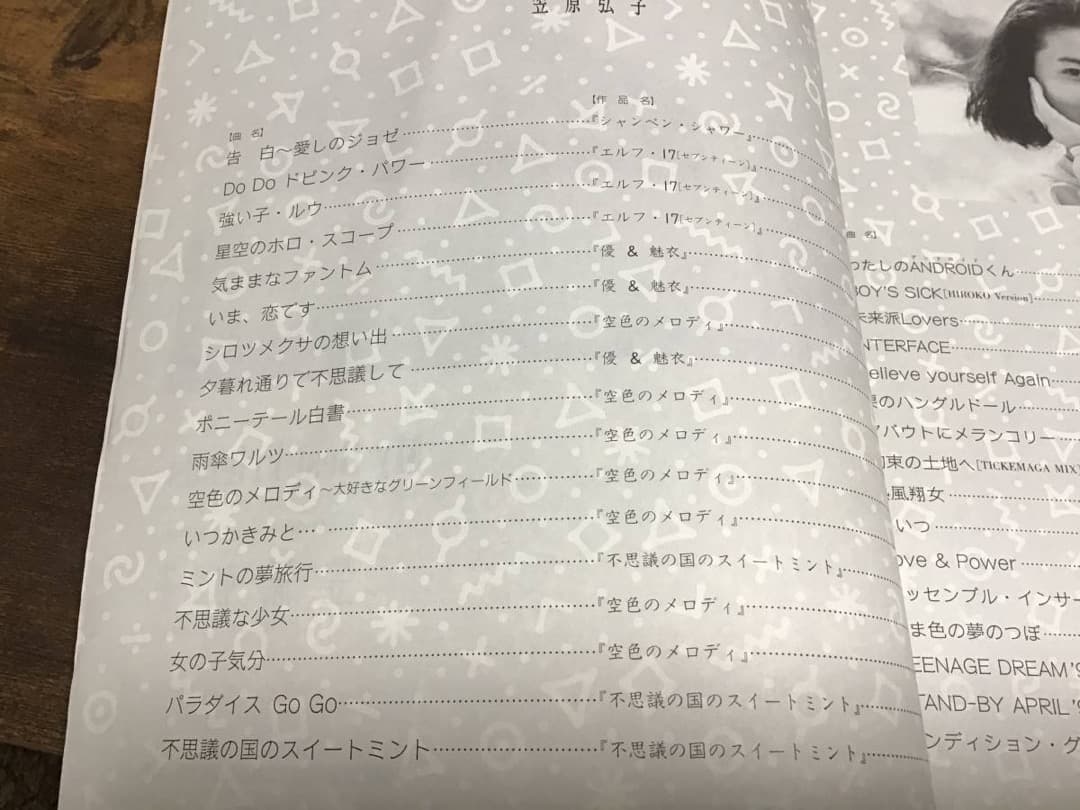 笠原弘子
【曲 名】
【作 品 名】
告 白～愛しのジョゼ………『シャンペン・シャワー』
Do Do ドピンク・パワー………『エルフ・17[セブンティーン]』
強い子・ルウ………『エルフ・17[セブンティーン]』
星空のホロ・スコープ………『エルフ・17[セブンティーン]』
気ままなファントム………『優 & 魅衣』
いま、恋です………『優 & 魅衣』
シロツメクサの想い出………『空色のメロディ』
夕暮れ通りで不思議して………『優 & 魅衣』
ポニーテール白書………『空色のメロディ』
雨傘ワルツ………『空色のメロディ』
空色のメロディ～大好きなグリーンフィールド………『空色のメロディ』
いつかきみと…………『空色のメロディ』
ミントの夢旅行………『不思議の国のスイートミント』
不思議な少女………『空色のメロディ』
女の子気分………『空色のメロディ』
パラダイス Go Go………『不思議の国のスイートミント』
不思議の国のスイートミント………『不思議の国のスイートミント』
曲 名】
わたしのANDROIDくん
BOY'S SICK[HIROKO Version]
未来派Lovers
INTERFACE
elieve yourself Again
のハングルドール
バウトにメランコリー
束の土地へ[TICKEMAGA MIX]
風翔女
いつ
ove & Power
ッセンブル・インサー
ま色の夢のつぼ
EENAGE DREAM'S
TAND-BY APRIL'S
ンディション・グ